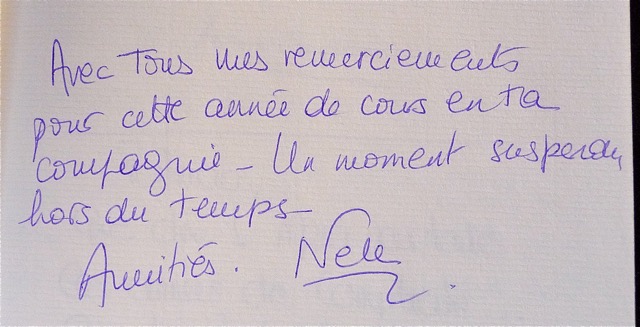 Avec Tous mes remerciements
pour cette année de cours en ta
compagnie - Un moment suspendu
hors du temps -
Amitiés. Nele